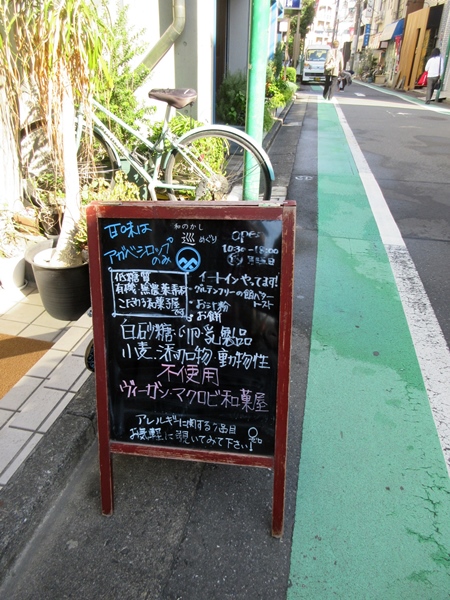 甘味は
アガベシロップ
のみ
和のかし
巡 めぐり
open
10:30-18:00
低糖質
有機・無農薬素材
こだわり和菓子屋
です
イートインやってます!
・グルテンフリーの餡バター
トースト
・おしる粉
・お餅
白石少糖・卵・乳製品
小麦・添加物・動物性
不使用
ヴィーガン・マクロビ和菓屋
アレルギーに関する7品目
お気軽に覗いてみて下さい